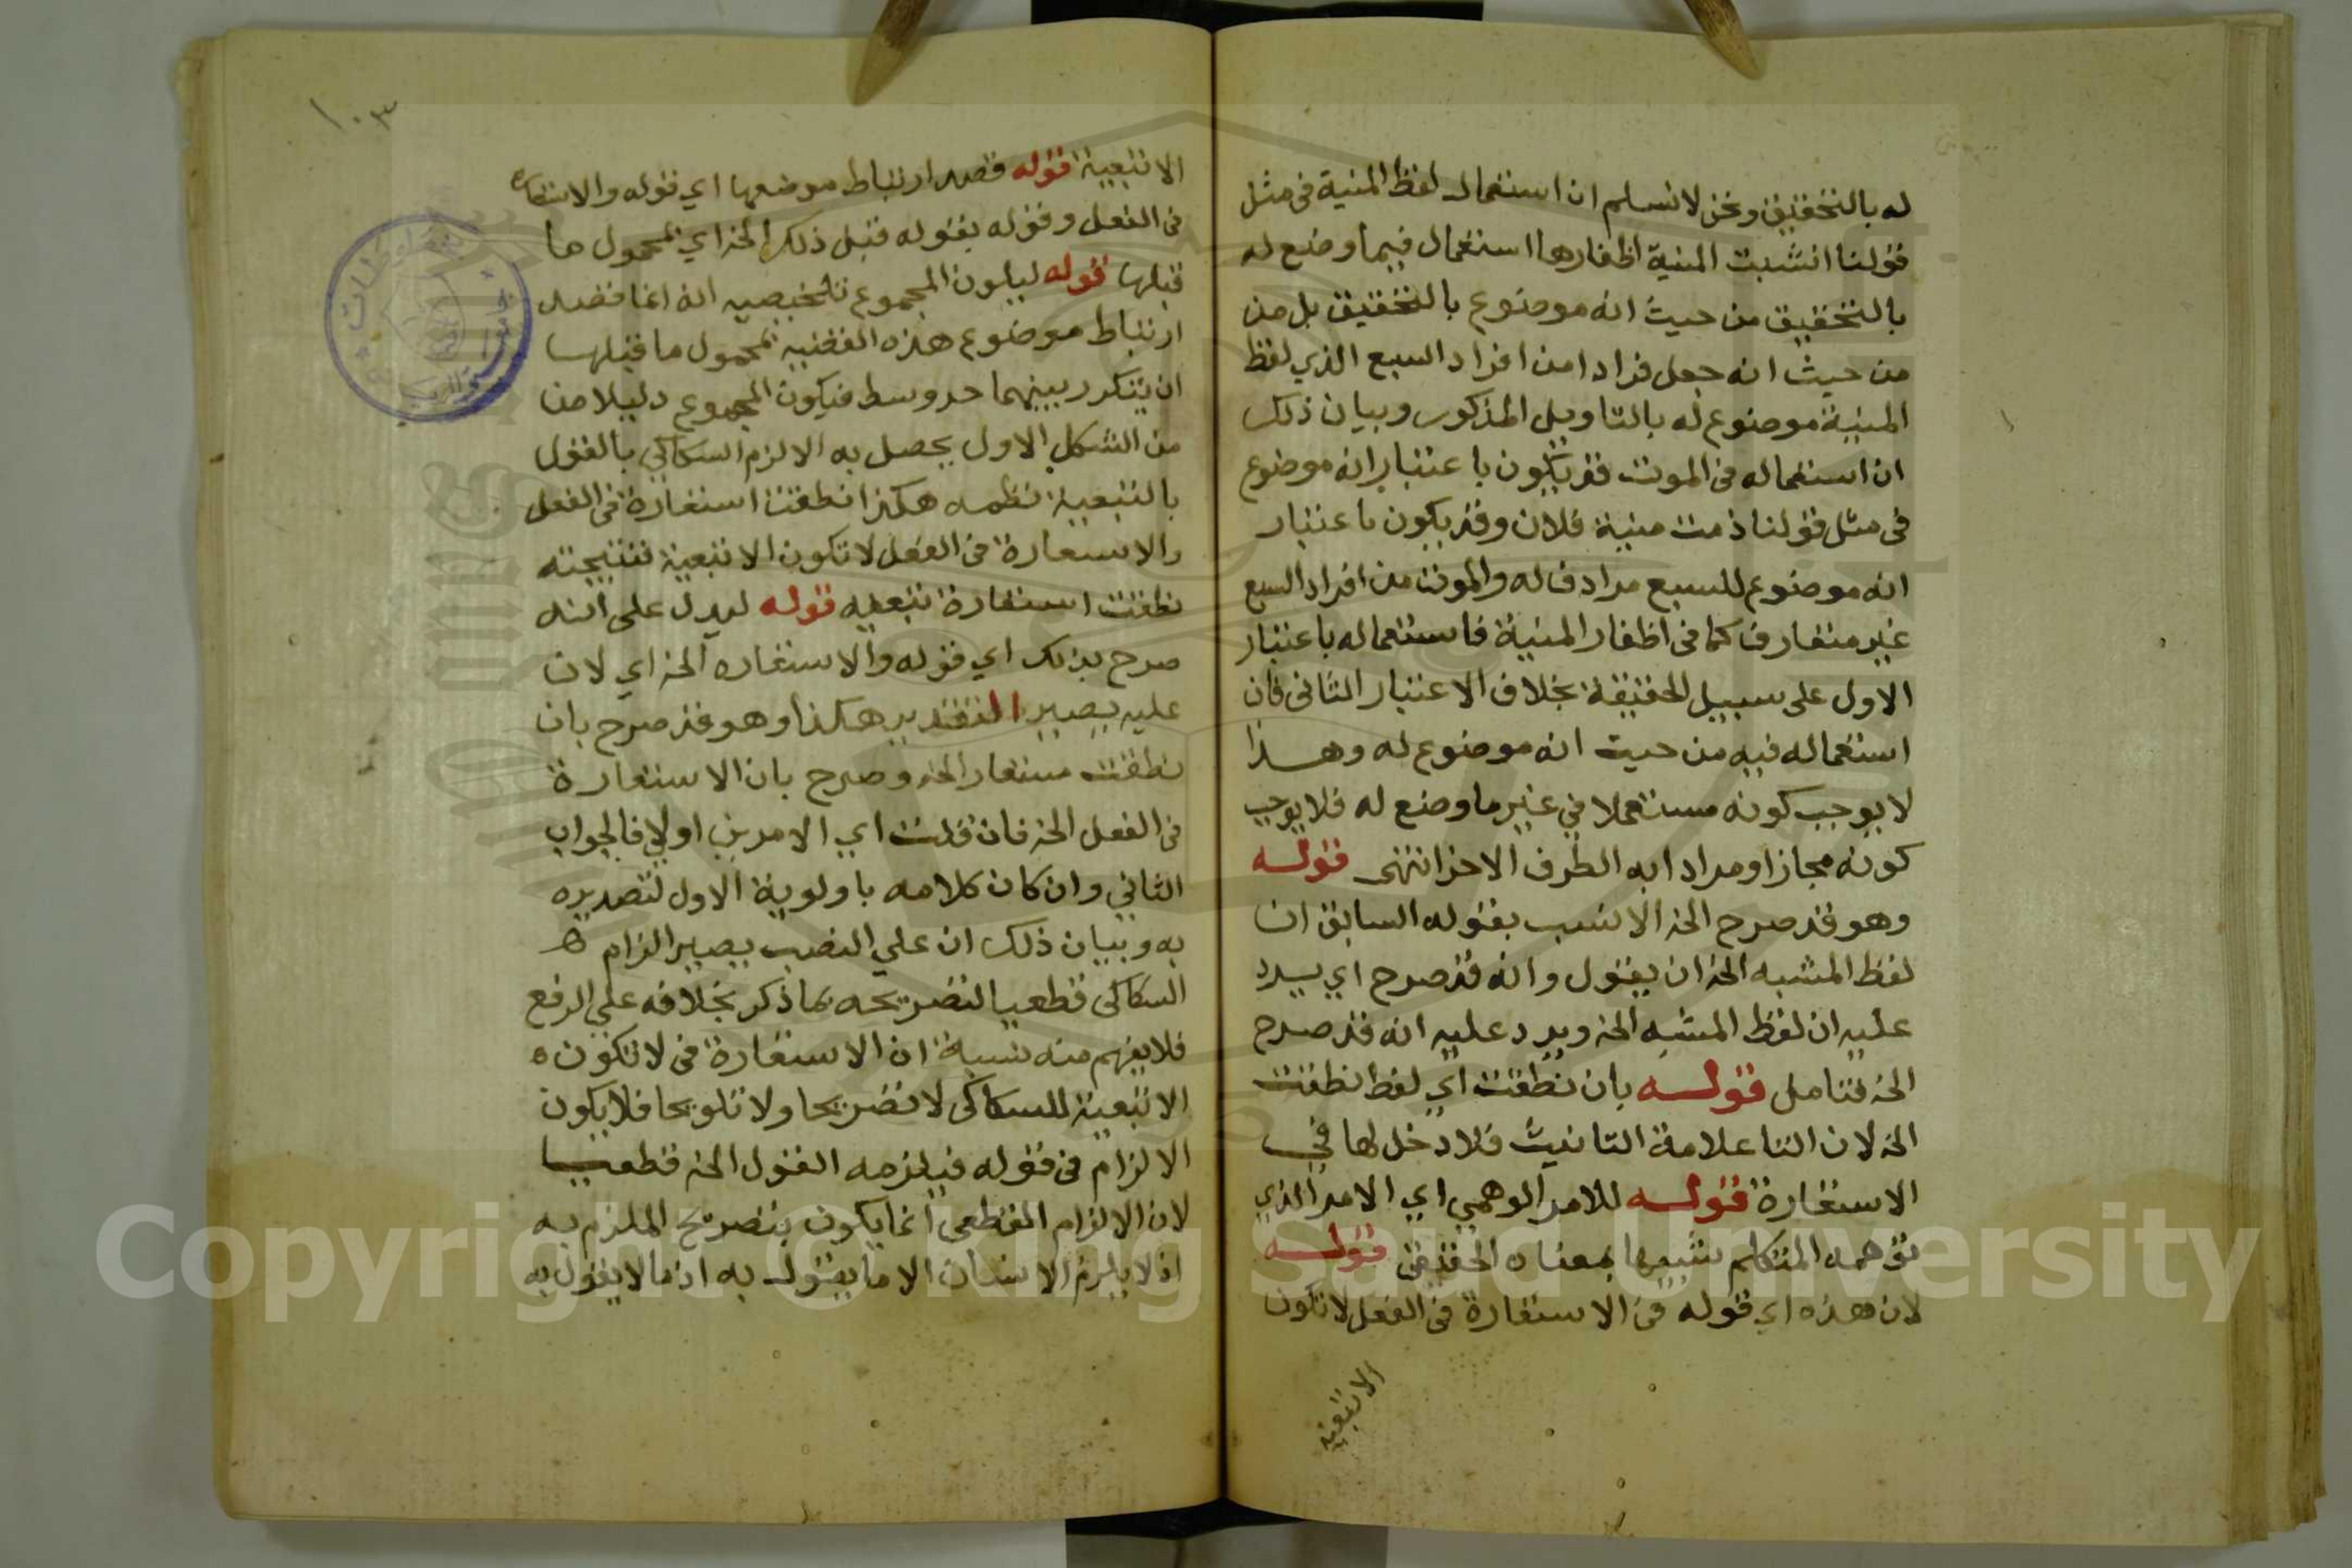 له بالتحقيق ونحن لا نسلم ان استعمال لفظ المنية في مثل
قولنا انشبت المنية اظفارها استعمال فيما وضع له
بالتحقيق من حيث انه موضوع بالتحقيق بل من
من حيث انه جعل فرادا من افراد السبع الذي لفظ
المنية موضوع له بالتاويل المذكور وبيان ذلك
ان استعماله في الموت قد يكون باعتبار انه موضوع
في مثل قولنا ذمت منية فلان وقد يكون باعتبار
انه موضوع للسبع مرادفا له والموت من افراد السبع
غير متعارف كما في اظفار المنية فاستعماله باعتبار
الاول على سبيل الحقيقة بخلاف الاعتبار الثاني فان
استعماله فيه من حيث انه موضوع له وهذا
لا يوجب كونه مستعملا في غير ما وضع له فلا يوجب
كونه مجازا ومرادا به الطرف الاخر انتهى قوله
وهو قد صرح الخ الانسب بقوله السابق ان
لفظ المشبه الخ ان يقول وانه قد صرح اي يرد
عليه ان لفظ المشبه الخ ويرد عليه انه قد صرح
الخ فتامل قوله بان نطقت اي لفظ نطقت
الخ لان التا علامة التانيث فلا دخل لها في
الاستعارة قوله للامر الوهمي اي الامر الذي
توهمه المتكلم شبيها بمعناه الحقيقي قوله
لان هذه اي قوله في الاستعارة في الفعل لا تكون
الا تبعية
١٠٣
الا تبعية قوله قصد ارتباط موضعها اي قوله والاستعاره
في الفعل وقوله بقوله قبل ذلك الخ اي بمحمول ما
قبلها قوله ليكون المجموع تلخيصه انه انما قصد
ارتباط موضوع هذه القضية بمحمول ما قبلها
ان يتكرر بينهما حد وسط فيكون المجموع دليلا من
من الشكل الاول يحصل به الالزم السكاكي بالقول
بالتبعية نظمه هكذا نطقت استعارة في الفعل
والاستعارة في الفعل لا تكون الا تبعية فنتيجته
نطقت استعارة تبعيه قوله ليدل على انه
صرح بذلك اي قوله والاستعاره الخ اي لان
عليه يصير التقدير هكذا وهو قد صرح بان
نطقت مستعار الخ وصرح بان الاستعارة
في الفعل الخ فان قلت اي الامرين اولي فالجواب
الثاني وان كان كلامه باولوية الاول لتصديره
به وبيان ذلك ان علي النصب يصير الزام
السكاكي قطعيا لتصريحه بما ذكر بخلافه علي الرفع
فلا يفهم منه نسبة ان الاستعارة في لا تكون
الا تبعية للسكاكي لا تصريحا ولا تلويحا فلا يكون
الالزام في قوله فيلزمه القول الخ قطعيا
لان الالزام القطعي انما يكون بتصريح الملزم به
اذ لا يلزم الانسان الا ما يقول به اذ ما لا يقول به
Copyright © King Saud University